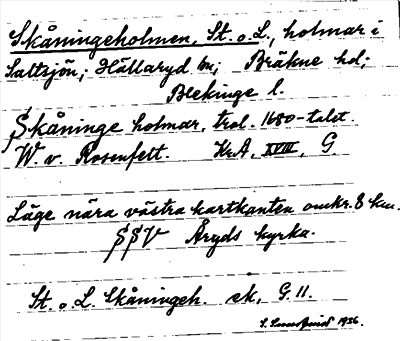 Skåningeholmen, St. o. L., holmar i
Saltsjön; Hällaryd sn; Bräkne hd;
Blekinge l.
Skåninge holmar, trol. 1680-talet.
W. v. Rosenfelt. KrA, XVIII, G.
Läge nära västra kartkanten omkr. 8 km.
SSV Åryds kyrka.
St. o. L. Skåningeh. ek, G. 11.
1936.